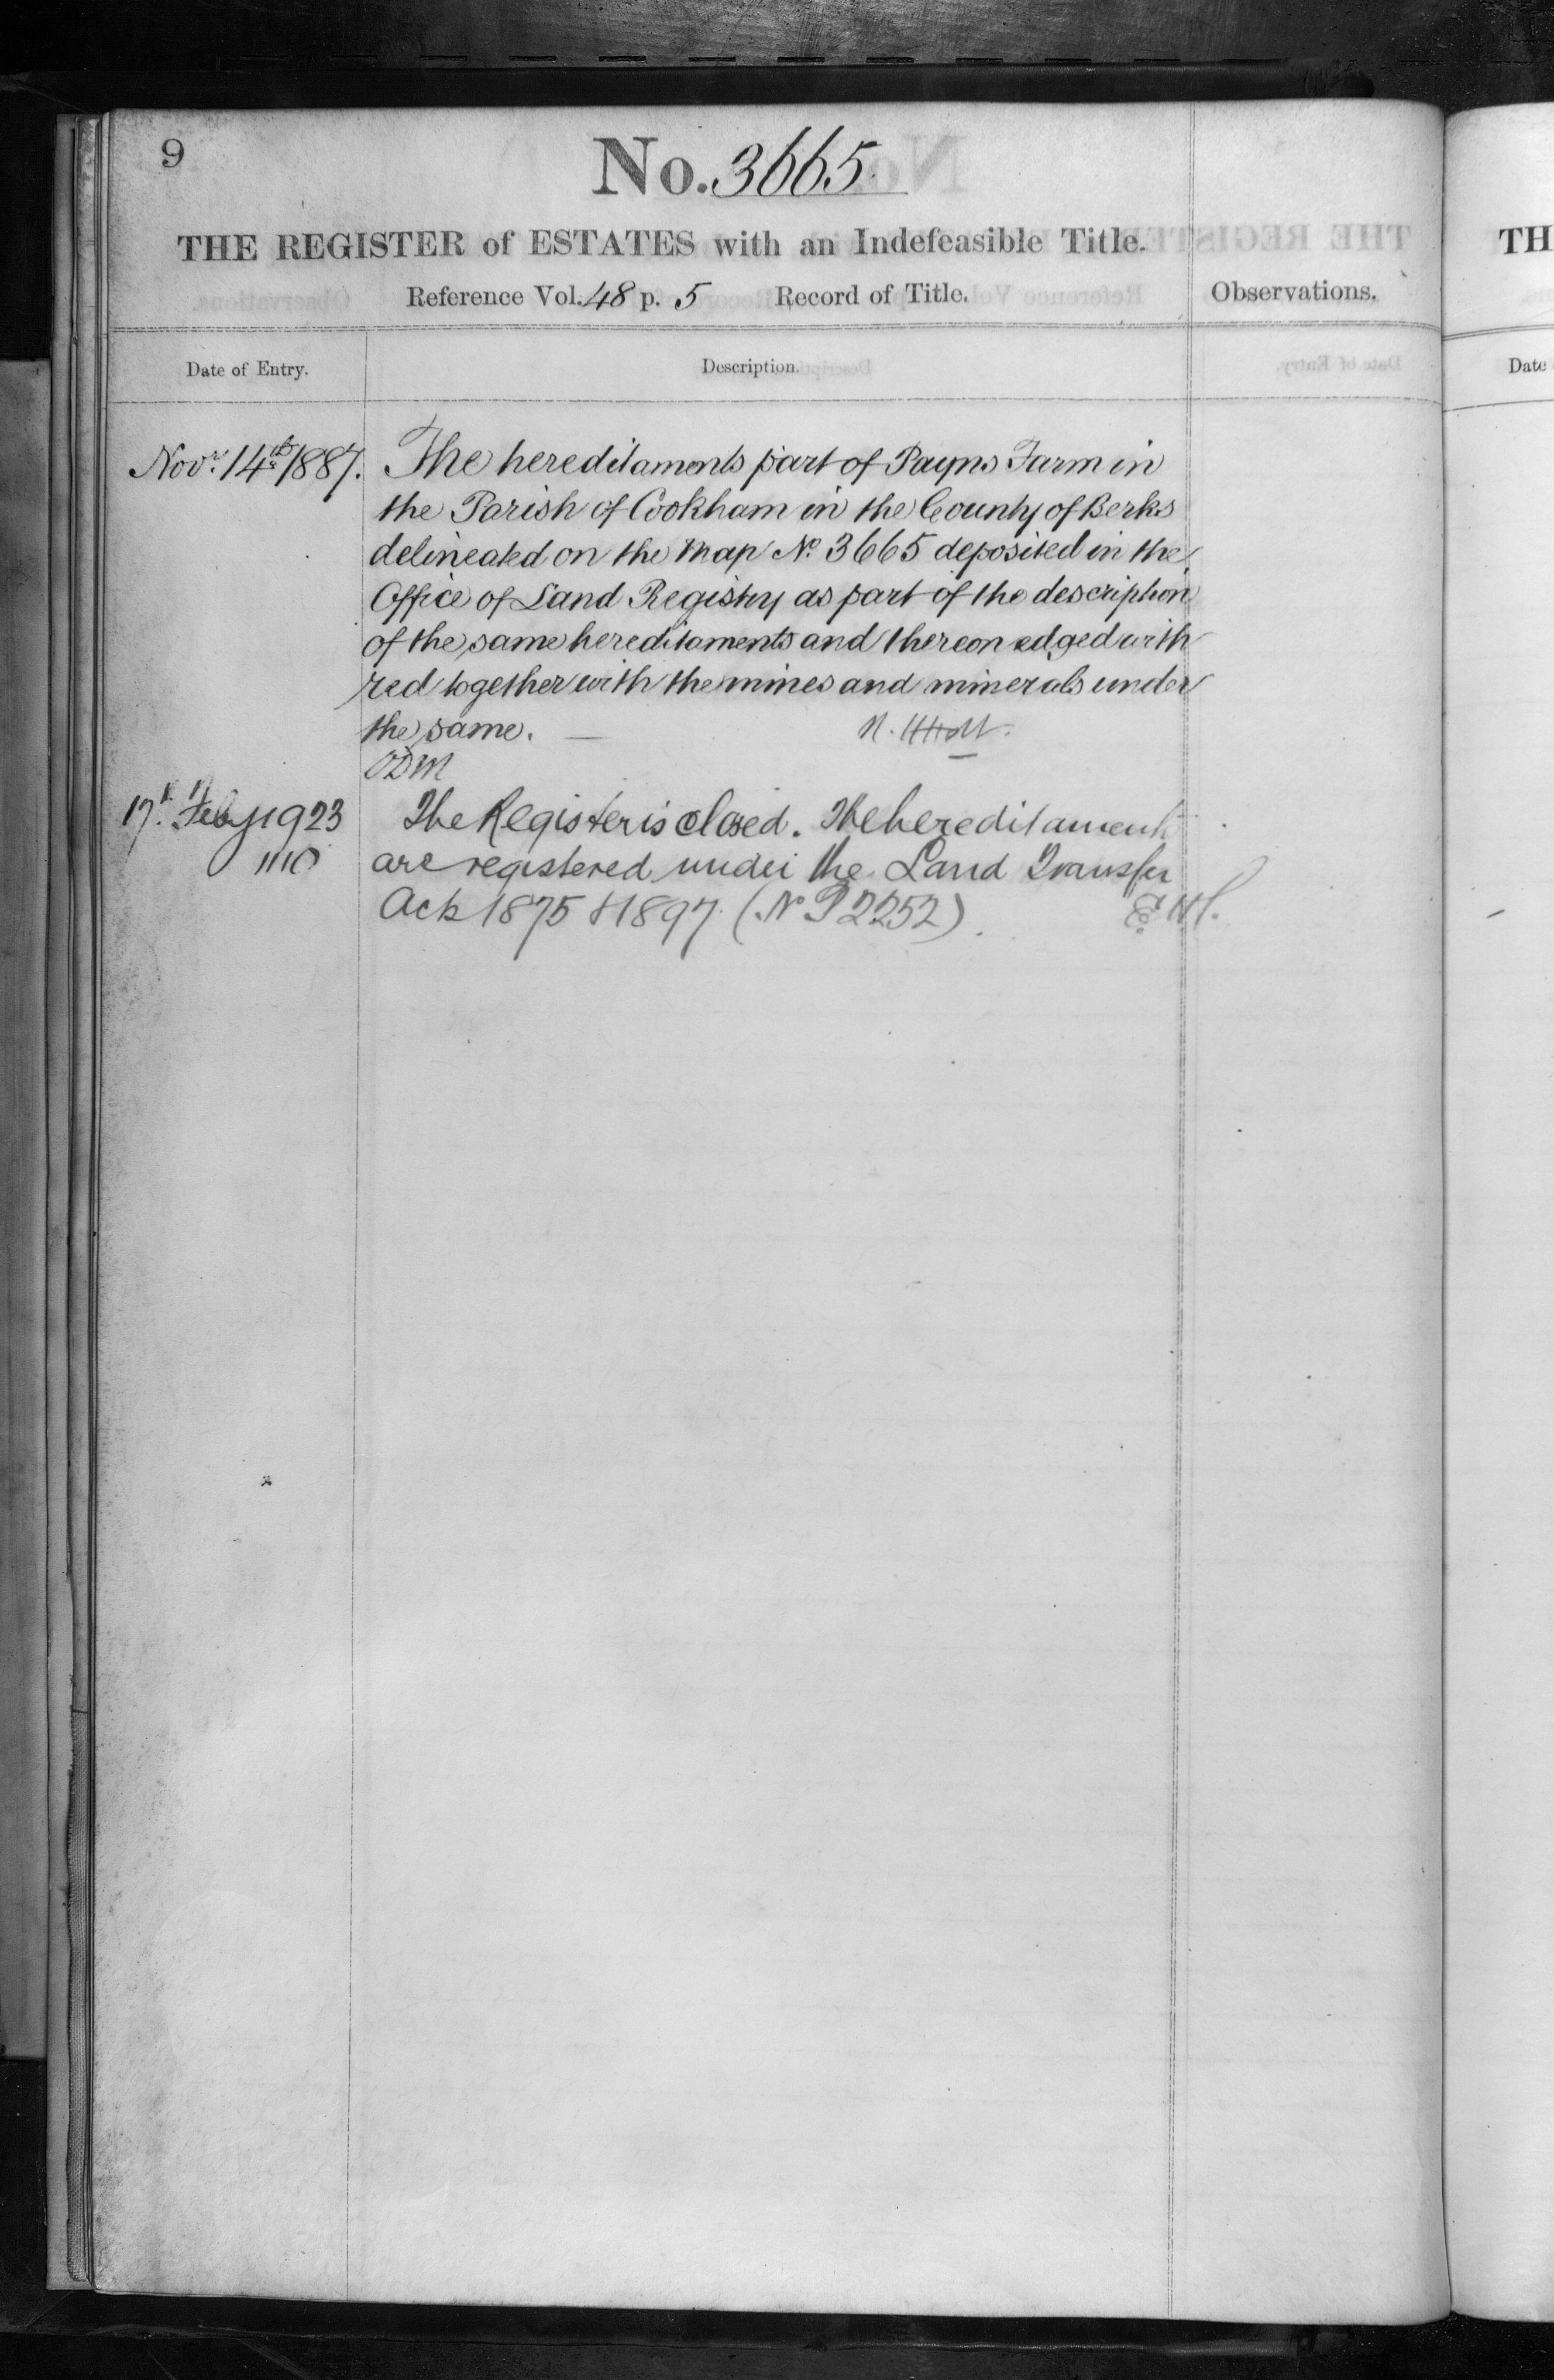 9
No. 3665.
THE REGISTER of ESTATES with an Indefeasible Title.
Reference Vol. 48 p. 5 Record of Title.
Observations.
Date of Entry.
Description.
Novr. 14th 1887.
The hereditaments part of Payns Farm in
the Parish of Cookham in the County of Berks
delineated on the map No. 3665 deposited in the
Office of Land Registry as part of the description
of the same hereditaments and thereon edged with
red together with the mines and minerals under
the same. —
ODM
17th Feby 1923
The Register is closed. The hereditaments
are registered under the Land Transfer
Acts 1875 & 1897. (No P 2252).
TH
Date